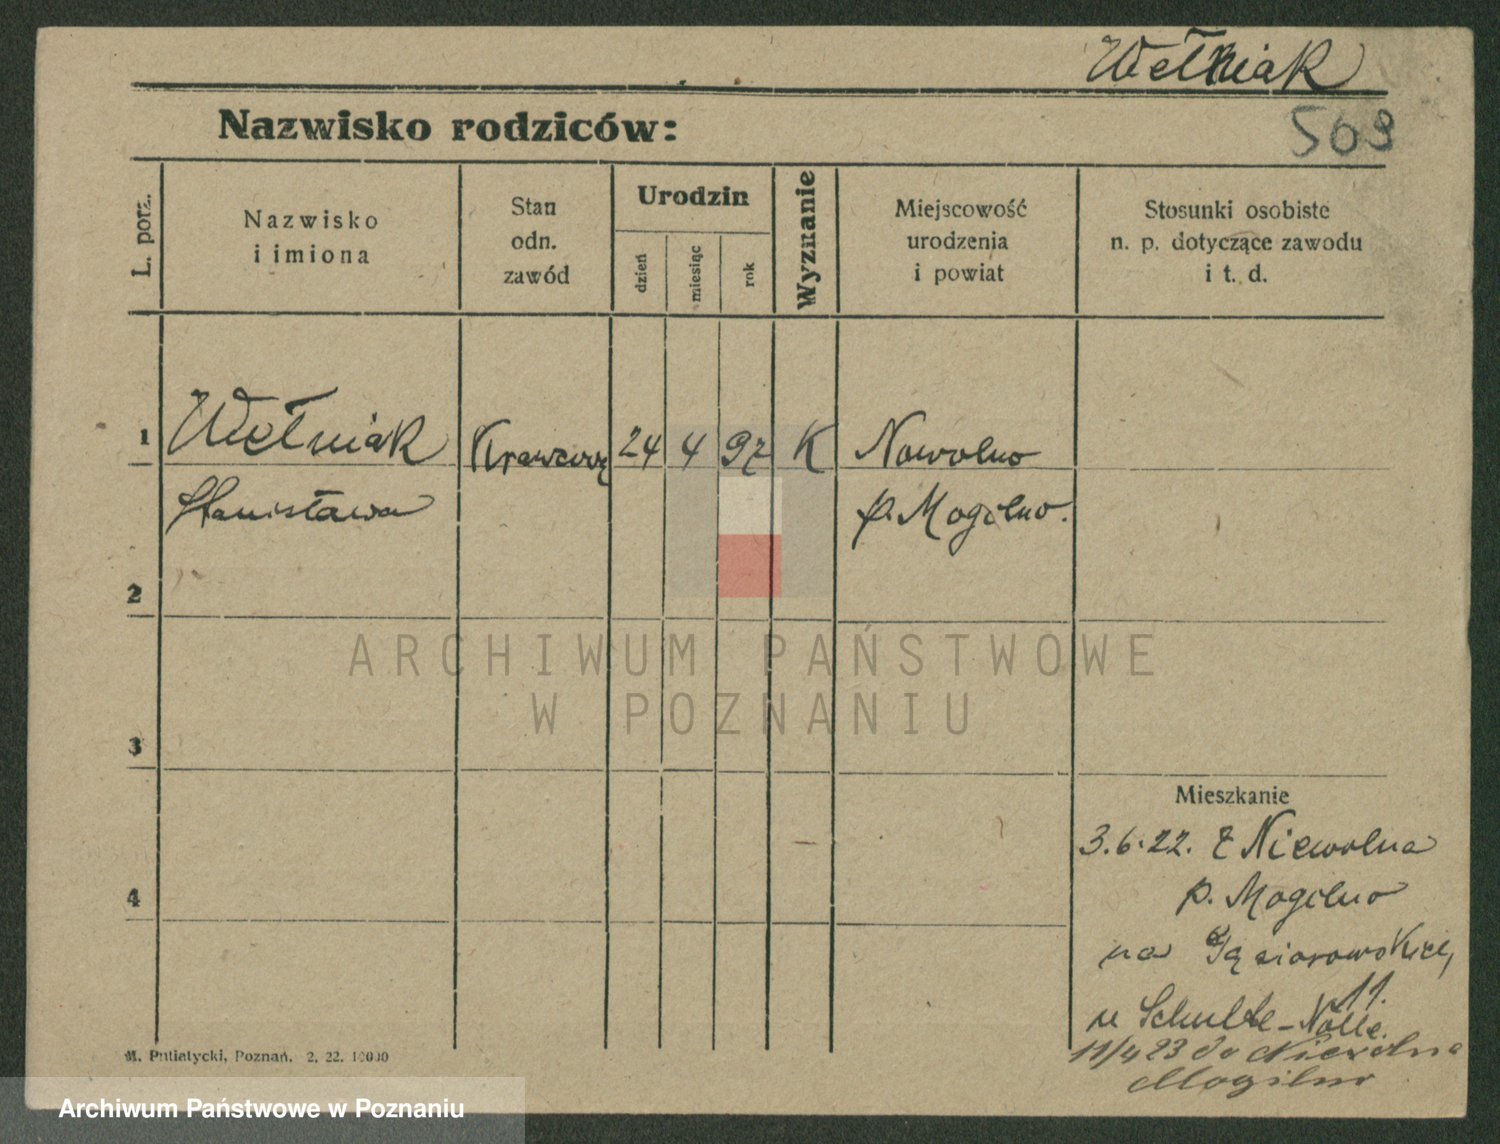 Wełniak
509
Nazwisko rodziców:
L. porz.
Nazwisko
i imiona
Stan
odn.
zawód
Urodzin
dzień
miesiąc
rok
Wyznanie
Miejscowość
urodzenia
i powiat
Stosunki osobiste
n. p. dotyczące zawodu
i t. d.
1 Wełniak 24 4 97 K Nowolno
Stanisława p. Mogilno.
2
3
4
Mieszkanie
3.6.22. z Niewolna
p. Mogilno
na
11.
u Schulte-Nölle.
11/4 23 do Niewolna
Mogilno
M. Putiatycki, Poznań. 2, 22. 10000
ARCHIWUM PAŃSTWOWE
W POZNANIU
Archiwum Państwowe w Poznaniu